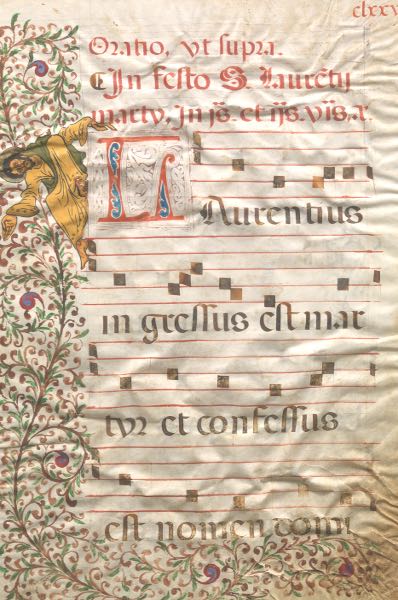 clxxv
Oratio, vt supra.
In festo S. Laurẽtij
marty, in ijs. et ijs. vr̃is. r.
Laurentius
in gressus est mar
tyr et confessus
est nomen domi